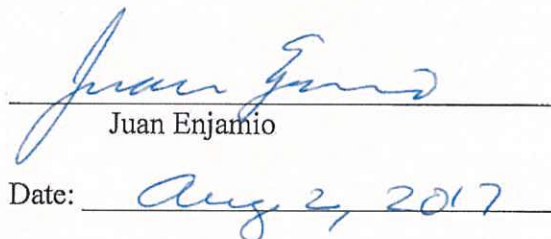 Juan Enjamio
Juan Enjamio
Date: Aug 2, 2017